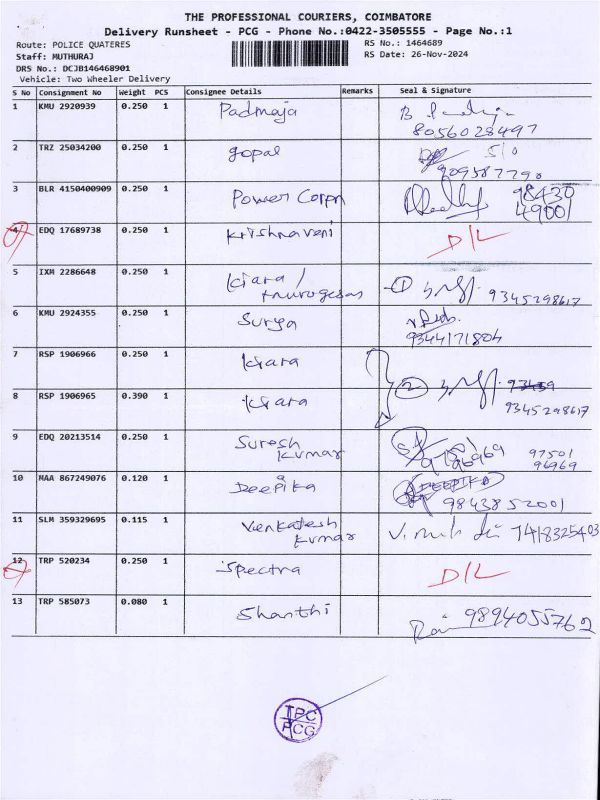 THE PROFESSIONAL COURIERS, COIMBATORE
Delivery Runsheet - PCG - Phone No.:0422-3505555 - Page No.:1
Route: POLICE QUATERES
RS No.: 1464689
Staff: MUTHURAJ
RS Date: 26-Nov-2024
DRS No.: DCJB146468901
Vehicle: Two Wheeler Delivery
S No Consignment No Weight PCS Consignee Details Remarks Seal & Signature
1 KMU 2920939 0.250 1 Padmaja
8056028497
2 TRZ 25034200 0.250 1 gopal S/o
9095877290
3 BLR 4150400909 0.250 1 Power Corpn 98430
49001
4 EDQ 17689738 0.250 1 Krishnaveni D/L
5 IXM 2286648 0.250 1 Kiara /
Murugesan 1 9345298617
6 KMU 2924355 0.250 1 Surya
9344171804
7 RSP 1906966 0.250 1 Kiara
2
8 RSP 1906965 0.390 1 Kiara 9345298617
9 EDQ 20213514 0.250 1 Suresh
Kumar 97501
96969
10 MAA 867249076 0.120 1 Deepika DEEPIKA
9843852001
11 SLM 359329695 0.115 1 Venkatesh
Kumar 7418325403
12 TRP 520234 0.250 1 Spectra D/L
13 TRP 585073 0.080 1 Shanthi
9894055762
TPC
PCG